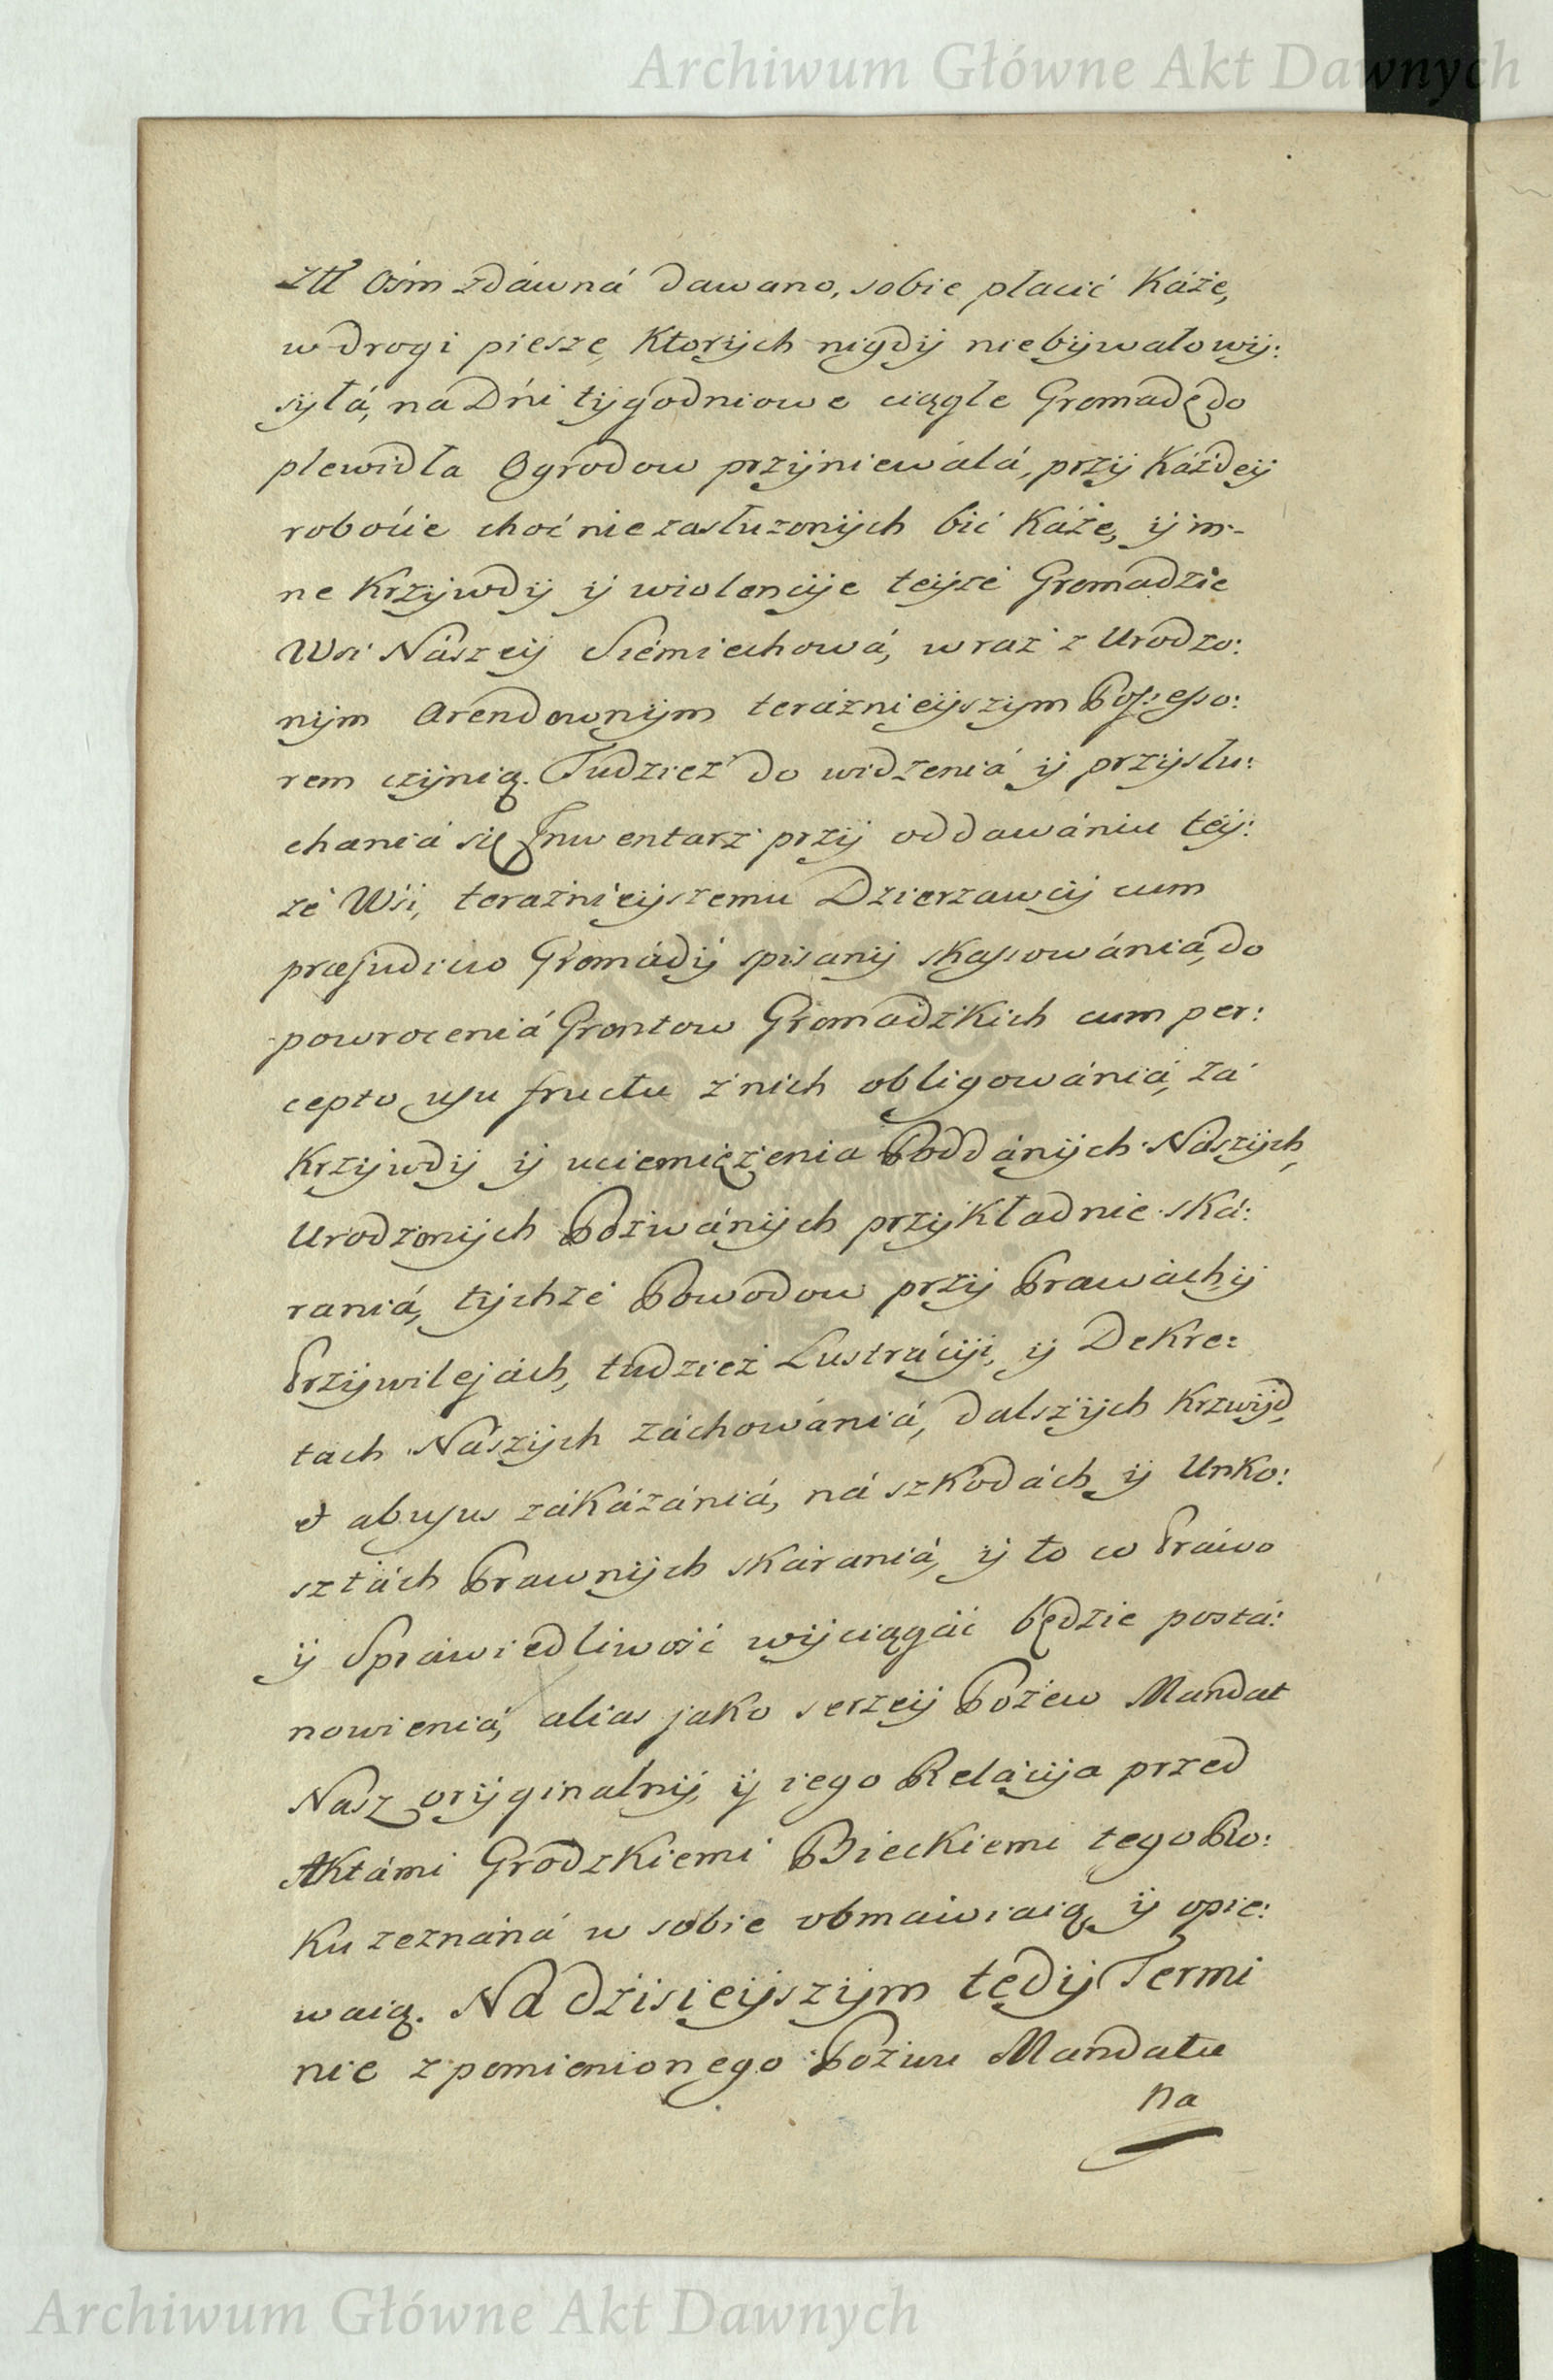 Archiwum Główne Akt Dawnych
Ztł Ośm zdáwná dawano, sobie płacić Káże,
w drogi piesze, Ktorÿch nigdÿ niebÿwało wÿ:
sÿłá, na Dńi tÿgodniowe ciągłe Gromadę do
plewidła Ogrodow przÿniewálá, przÿ Káżdeÿ
robocie choć niezasłużonÿch bić Káże, ÿ in-
ne Krzÿwdÿ ÿ wiolencÿe teÿże Gromadzie
Wsi Nászeÿ Siemiechowá, wraz z Urodzo:
nÿm Arendownÿm teráznieÿszÿm Possesso:
rem czÿnią. Tudzież do widzeniá ÿ przÿsłu:
chaniá się Inwentarz przÿ oddawániu teÿ:
że Wśi, teraźnieÿszemu Dzierzawcÿ cum
præjudicio Gromádÿ spisanÿ skassowániá, do
powroceniá Grontow Gromadzkich cum per:
cepto usu fructu z nich obligowániá, zá
Krzÿwdÿ ÿ uciemiężenia Poddánÿch Nászÿch,
Urodzonÿch Pozwánÿch przÿkładnie ská:
raniá, tÿchże Powodow przÿ Prawách ÿ
Przÿwilejách, tudzież Lustrácÿi, ÿ Dekre:
tach Nászÿch záchowániá, dalszÿch Krzwÿd,
et abusus zákázániá, ná szkodách ÿ Unko:
sztách Prawnÿch skárániá, ÿ to co Práwo
ÿ Spráwiedliwość wÿciągáć będzie postá:
nowieniá, alias jako szerzeÿ Pozew Mandat
Nasz orÿginalnÿ, ÿ iego Relácÿa przed
Aktámi Grodzkiemi Bieckiemi tego Ro:
Ku zeznáná w sobie obmáwiaią ÿ opie:
waią. Na dzisieÿszÿm tedÿ Termi
nie z pomienionego Pozwu Mandatu
na
Archiwum Główne Akt Dawnych